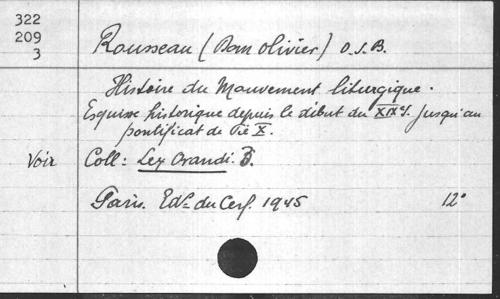 322
209
3
Rousseau (Dom olivier) O.S.B.
Histoire du Mouvement liturgique.
Esquisse historique depuis le début du XIXs. jusqu'au
pontificat de Pie X.
Voir Coll: Lex Orandi. 3.
Paris. Edns du Cerf. 1945 12°